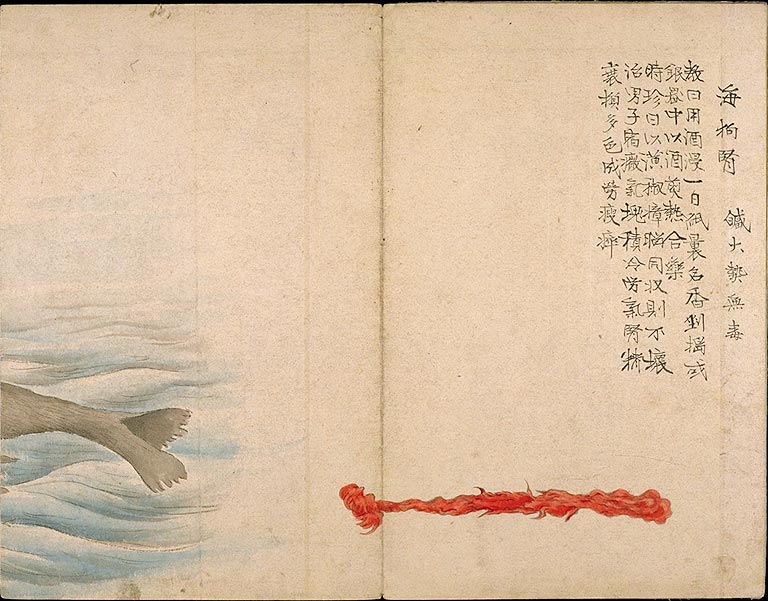 海狗腎 鹹大熱無毒
敩曰用酒浸一日紙裏炙香剉搗或
銀器中以酒煎熟合藥
時珍曰以漢椒樟腦同收則不壞
治男子宿癥氣塊積冷勞氣腎精
衰損多色成勞瘦瘁